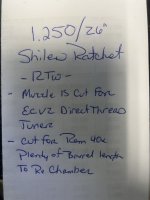 1.250/26"
Shilen Ratchet
- RTW -
- Muzzle Is Cut For
Ec V2 Direct Thread
Tuner
- Cut For Rem 40x
Plenty of Barrel length
To Re Chamber